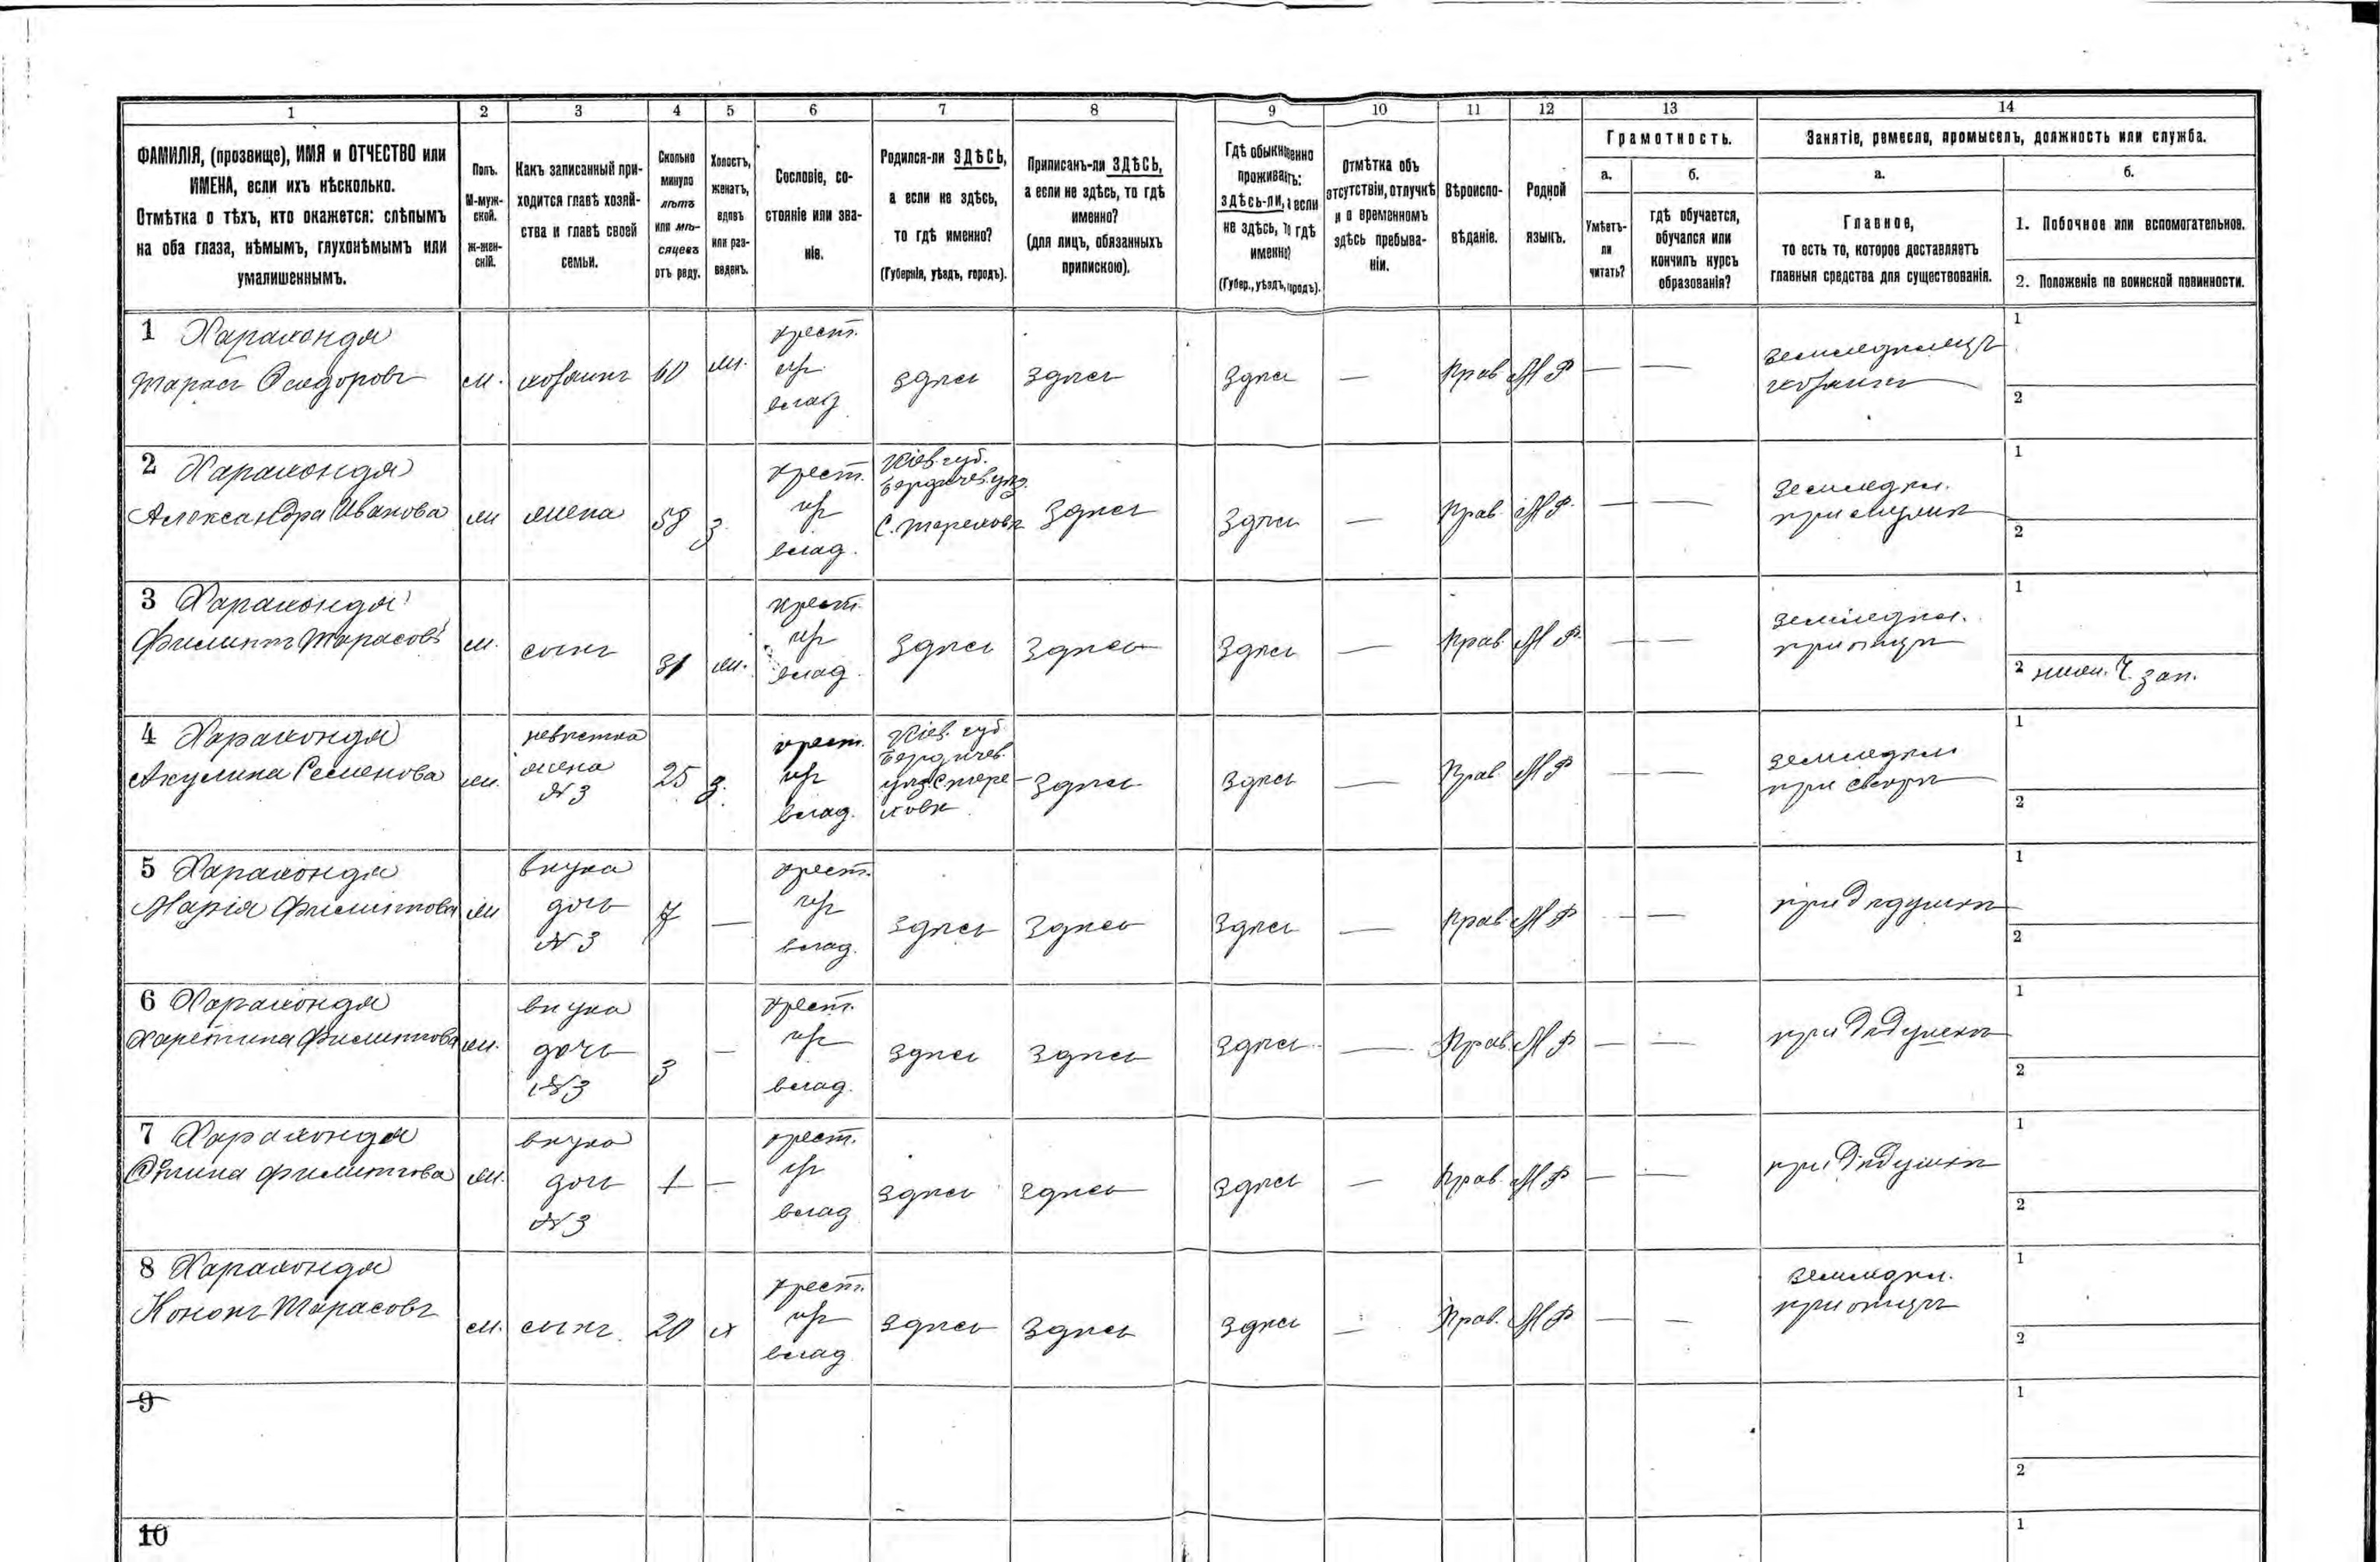 1 2 3 4 5 6 7 8 9 10 11 12 13 14
ФАМИЛІЯ, (прозвище), ИМЯ и ОТЧЕСТВО или
ИМЕНА, если ихъ нѣсколько.
Отмѣтка о тѣхъ, кто окажется: слѣпымъ
на оба глаза, нѣмымъ, глухонѣмымъ или
умалишеннымъ.
Полъ.
М-муж-
ской.
ж-жен-
скій.
Какъ записанный при-
ходится главѣ хозяй-
ства и главѣ своей
семьи.
Сколько
минуло
лѣтъ
или мѣ-
сяцевъ
отъ роду.
Холостъ,
женатъ,
вдовъ
или раз-
веденъ.
Сословіе, со-
стояніе или зва-
ніе.
Родился-ли ЗДѢСЬ,
а если не здѣсь,
то гдѣ именно?
(Губернія, уѣздъ, городъ).
Приписанъ-ли ЗДѢСЬ,
а если не здѣсь, то гдѣ
именно?
(для лицъ, обязанныхъ
припискою).
Гдѣ обыкновенно
проживаетъ:
здѣсь-ли, а если
не здѣсь, то гдѣ
именно?
(Губер., уѣздъ, городъ).
Отмѣтка объ
отсутствіи, отлучкѣ
и о временномъ
здѣсь пребыва-
ніи.
Вѣроиспо-
вѣданіе.
Родной
языкъ.
Грамотность.
а.
Умѣетъ-
ли
читать?
б.
гдѣ обучается,
обучался или
кончилъ курсъ
образованія?
Занятіе, ремесло, промыселъ, должность или служба.
а.
Главное,
то есть то, которое доставляетъ
главныя средства для существованія.
б.
1. Побочное или вспомогательное.
2. Положеніе по воинской повинности.
1 Хараконда
Тарас
м. хозяинъ 60 ж.
крест.
влад
здѣсь здѣсь здѣсь — Прав М Р — —
земледѣлецъ
хозяинъ
1
2
2 Хараконда
Александра Иванова
ж жена 58 з.
крест.
влад.
Кіев. губ.
Бердичев. уѣз.
С. Терехова
здѣсь здѣсь — Прав. М Р. — —
земледѣл.
при мужѣ
1
2
3 Хараконда
Филиппъ Тарасовъ
м. сынъ 31 ж.
крест.
влад.
здѣсь здѣсь здѣсь — Прав. М Р. — —
земледѣл.
при отцѣ
1
2 зап.
4 Хараконда
Акулина Семенова
ж.
невѣстка
жена
№ 3
25 з.
крест.
влад.
Кіев. губ
Бердичев.
уѣз. С Тере-
ховк
здѣсь здѣсь — Прав. М Р — —
земледѣл
при свекрѣ
1
2
5 Хараконда
Марія Филиппова
ж
внука
дочь
№ 3
7 —
крест.
влад.
здѣсь здѣсь здѣсь — Прав. М Р — —
при дѣдушкѣ
1
2
6 Хараконда
Харетина Филиппова
ж.
внука
дочь
№ 3
3 —
крест.
влад.
здѣсь здѣсь здѣсь — Прав. М Р — —
при дѣдушкѣ
1
2
7 Хараконда
Филиппова
ж.
внука
дочь
№ 3
1 —
крест.
влад
здѣсь здѣсь здѣсь — Прав. М Р — —
при дѣдушкѣ
1
2
8 Хараконда
Кононъ Тарасовъ
м. сынъ. 20 х
крест.
влад
здѣсь здѣсь здѣсь — Прав. М Р — —
земледѣл.
при отцѣ
1
2
9
1
2
10
1